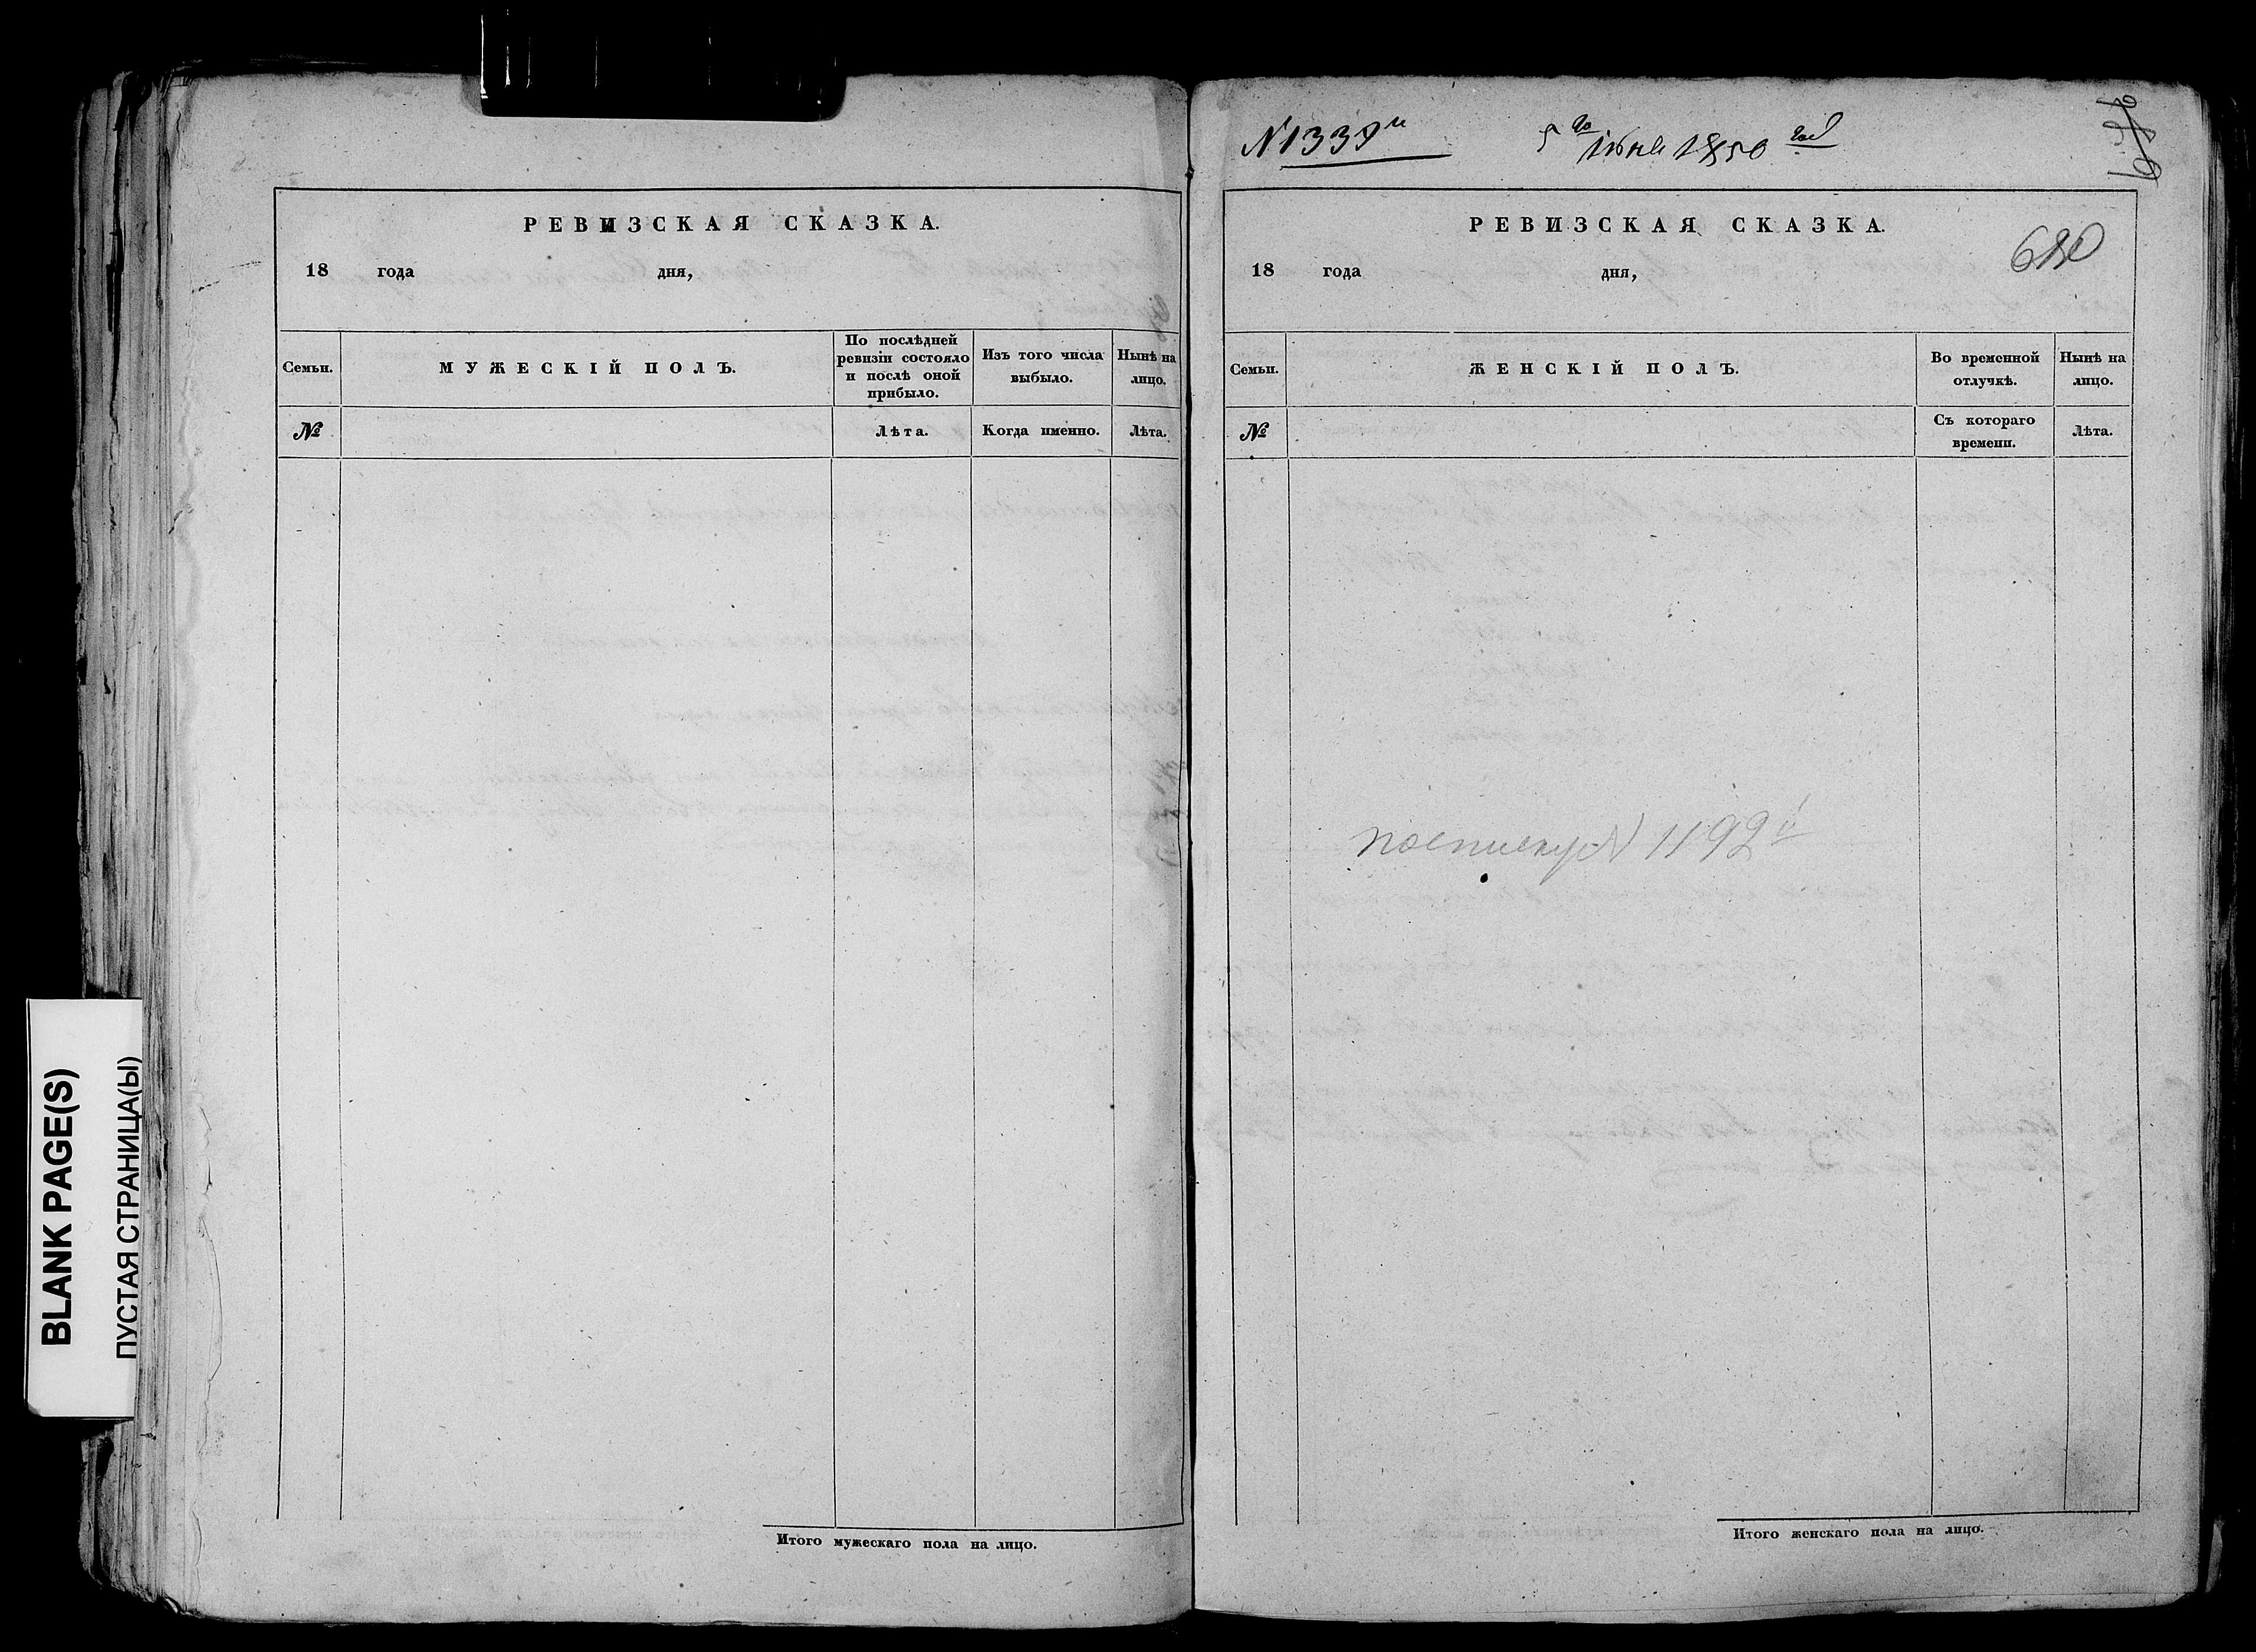 РЕВИЗСКАЯ СКАЗКА.
18 года дня,
Семьи. МУЖЕСКІЙ ПОЛЪ. По послѣдней ревизіи состояло и послѣ оной прибыло. Изъ того числа выбыло. Нынѣ на лицо.
№ Лѣта. Когда именно. Лѣта.
Итого мужескаго пола на лицо.
BLANK PAGE(S)
ПУСТАЯ СТРАНИЦА(Ы)
N 1339й 5го Іюня 1850 год
РЕВИЗСКАЯ СКАЗКА.
680
18 года дня,
Семьи. ЖЕНСКІЙ ПОЛЪ. Во временной отлучкѣ. Нынѣ на лицо.
№ Съ котораго времени. Лѣта.
N 1192й
Итого женскаго пола на лицо.